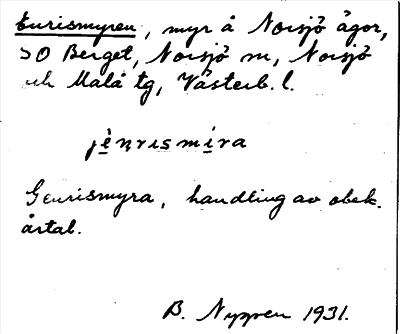 Eurismyren, myr å Norsjö ägor,
SO Berget, Norsjö sn, Norsjö
och Malå tg, Västerb. l.
jènrismíra
Genrismyra, handling av obek.
årtal.
B. Nygren 1931.